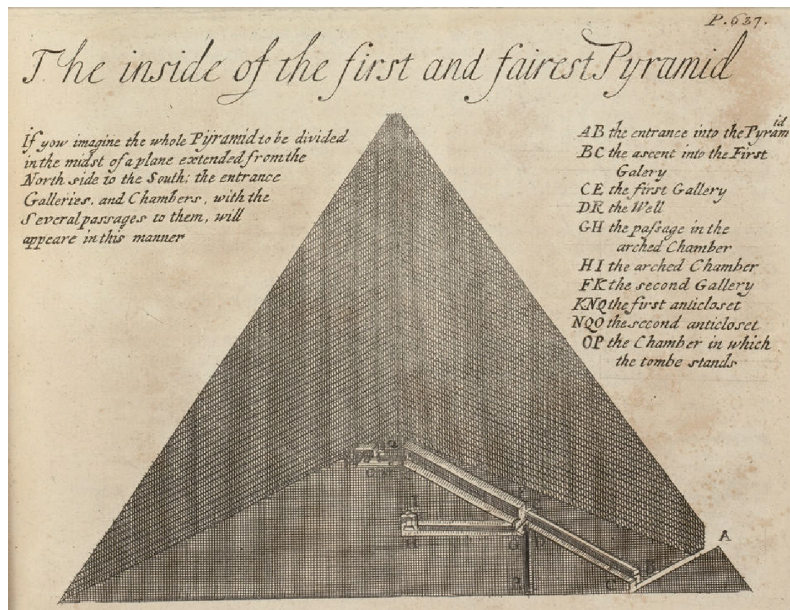 P. 637.
The inside of the first and fairest Pyramid
If yow imagine the whole Pyramid to be divided
in the midst of a plane extended from the
North side to the South: the entrance
Galleries, and Chambers, with the
Several passages to them, will
appeare in this manner
AB the entrance into the Pyramid
BC the ascent into the First
Galery
CE the first Gallery
DR the Well
GH the paſsage in the
arched Chamber
HI the arched Chamber
FK the second Gallery
KNQ the first anticloset
NQO the second anticloset
OP the Chamber in which
the tombe stands
A
I
H
G
R
C
B